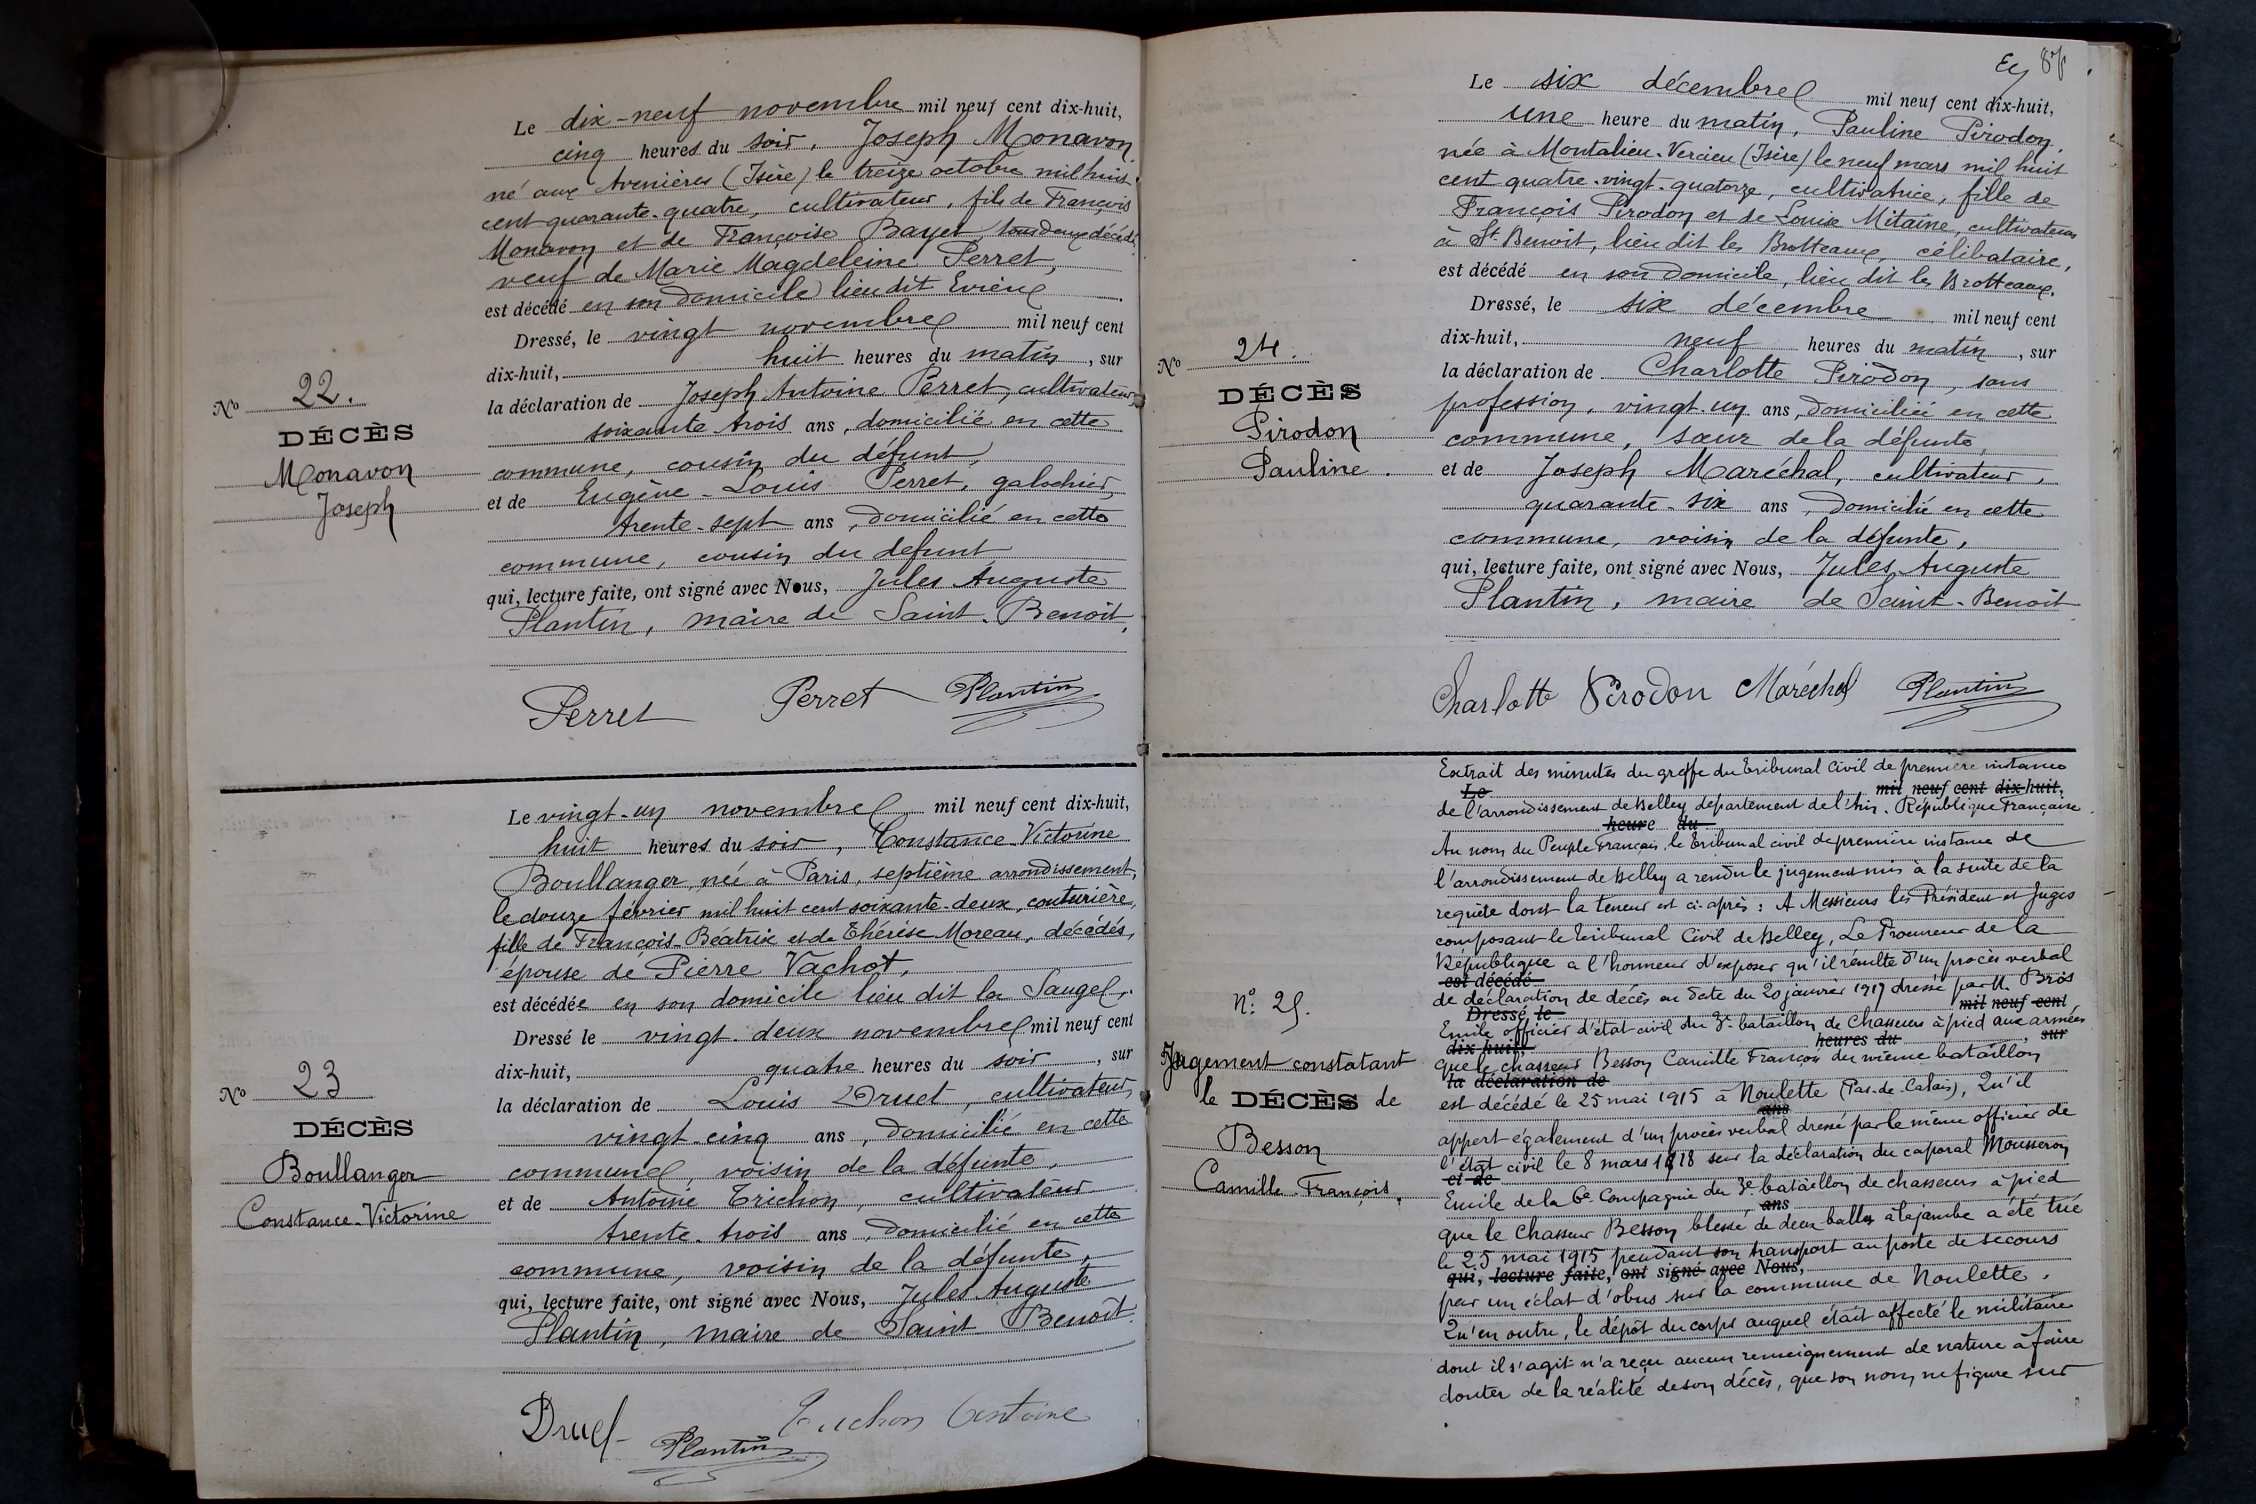 Le dix-neuf novembre mil neuf cent dix-huit,
cinq heures du soir, Joseph Monavon,
né aux Avenières (Isère) le treize octobre mil huit
cent quarante-quatre, cultivateur, fils de François
Monavon et de Françoise Bayet, tous deux décédés
veuf de Marie Magdeleine Perret,
est décédé en son domicile lieu dit Evieu
Dressé, le vingt novembre mil neuf cent
dix-huit, huit heures du matin, sur
la déclaration de Joseph Antoine Perret, cultivateur,
soixante-trois ans, domicilié en cette
commune, cousin du défunt,
et de Eugène-Louis Perret, galochier,
trente-sept ans, domicilié en cette
commune, cousin du defunt
qui, lecture faite, ont signé avec Nous, Jules Auguste
Plantin, maire de Saint-Benoit.
Nº 22.
DÉCÈS
Monavon
Joseph
Perret Perret Plantin
Le vingt-un novembre mil neuf cent dix-huit,
huit heures du soir, Constance-Victorine
Boullanger, née à Paris, septième arrondissement,
le douze février mil huit cent soixante-deux, couturière,
fille de François-Béatrix et de Thérèse Moreau, décédés,
épouse de Pierre Vachot,
est décédée en son domicile lieu dit la Sauge.
Dressé le vingt-deux novembre mil neuf cent
dix-huit, quatre heures du soir, sur
la déclaration de Louis Druet, cultivateur,
vingt-cinq ans, domicilié en cette
commune voisin de la défunte,
et de Antoine Trichon, cultivateur
trente-trois ans, domicilié en cette
commune, voisin de la défunte,
qui, lecture faite, ont signé avec Nous, Jules Auguste
Plantin, maire de Saint-Benoît.
Nº 23
DÉCÈS
Boullanger
Constance-Victorine
Druet Plantin Trichon Antoine
87
Le six décembre mil neuf cent dix-huit,
une heure du matin, Pauline Pirodon,
née à Montalieu-Vercieu (Isère) le neuf mars mil huit
cent quatre-vingt-quatorze, cultivatrice, fille de
François Pirodon et de Louise Mitaine, cultivateurs
à St Benoit, lieu dit les Brotteaux, célibataire,
est décédé en son domicile, lieu dit les Brotteaux.
Dressé, le six décembre mil neuf cent
dix-huit, neuf heures du matin, sur
la déclaration de Charlotte Pirodon, sans
profession, vingt-un ans, domiciliée en cette
commune, sœur de la défunte,
et de Joseph Maréchal, cultivateur,
quarante-six ans, domicilié en cette
commune, voisin de la défunte,
qui, lecture faite, ont signé avec Nous, Jules Auguste
Plantin, maire de Saint-Benoit
Nº 24.
DÉCÈS
Pirodon
Pauline.
Charlotte Pirodon Maréchal Plantin
Extrait des minutes du greffe du Tribunal Civil de première instance
Le mil neuf cent dix-huit,
de l'arrondissement de Belley département de l'Ain. République Française
heure du
Au nom du Peuple Français, le Tribunal civil de première instance de
l'arrondissement de Belley a rendu le jugement mis à la suite de la
requête dont la teneur est ci-après : A Messieurs les Président et Juges
composant le Tribunal Civil de Belley, Le Procureur de la
République a l'honneur d'exposer qu'il résulte d'un procès verbal
est décédé
de déclaration de décès en date du 20 janvier 1917 dressé par M. Bros
Dressé, le mil neuf cent
Emile officier d'état civil du 3e bataillon de Chasseurs à pied aux armées
dix-huit, heures du , sur
que le chasseur Besson Camille François du même bataillon
la déclaration de
est décédé le 25 mai 1915 à Noulette (Pas-de-Calais), Qu'il
ans
appert également d'un procès verbal dressé par le même officier de
l'état civil le 8 mars 1918 sur la déclaration du caporal Mousseron
et de
Emile de la 6e Compagnie du 3e bataillon de chasseurs à pied
ans
que le Chasseur Besson blessé de deux balles à la jambe a été tué
le 25 mai 1915 pendant son transport au poste de secours
qui, lecture faite, ont signé avec Nous,
par un éclat d'obus sur la commune de Noulette.
Qu'en outre, le dépôt du corps auquel était affecté le militaire
dont il s'agit n'a reçu aucun renseignement de nature à faire
douter de la réalité de son décès, que son nom ne figure sur
Nº: 25.
Jugement constatant
le DÉCÈS de
Besson
Camille-François.